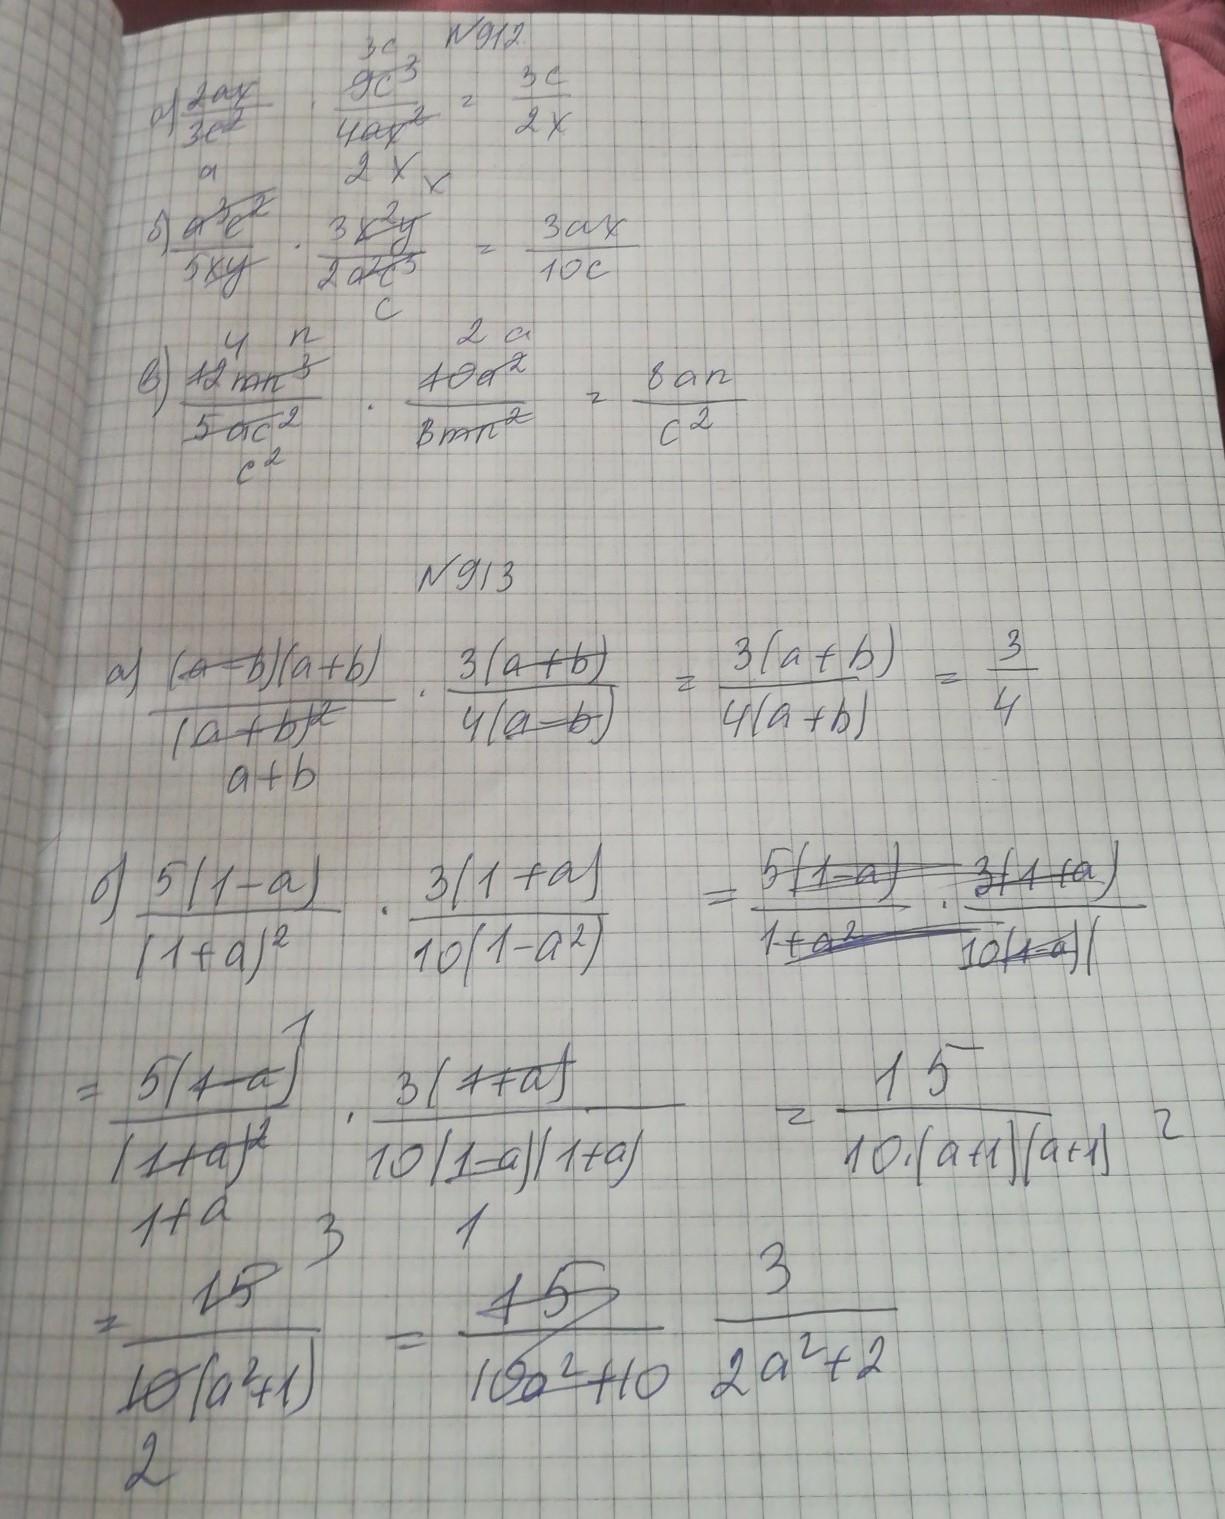 N912
3c
а) 2ax/3c² · 9c³/4ax² = 3c/2x
2 x
a x
б) a³c²/5xy · 3x²y/2a²c³ = 3ax/10c
c
4 n 2 a
в) 12mn³/5ac² · 10a²/3mn² = 8an/c²
c²
N913
а) (a-b)(a+b)/(a+b)² · 3(a+b)/4(a-b) = 3(a+b)/4(a+b) = 3/4
a+b
б) 5(1-a)/(1+a)² · 3(1+a)/10(1-a²) = 5(1-a)/1+a² · 3(1+a)/10(1-a)(
1
= 5(1-a)/(1+a)² · 3(1+a)/10(1-a)(1+a) = 15/10·(a+1)(a+1) =
1+a 1
3
= 15/10(a²+1) = 15/10a²+10 3/2a²+2
2